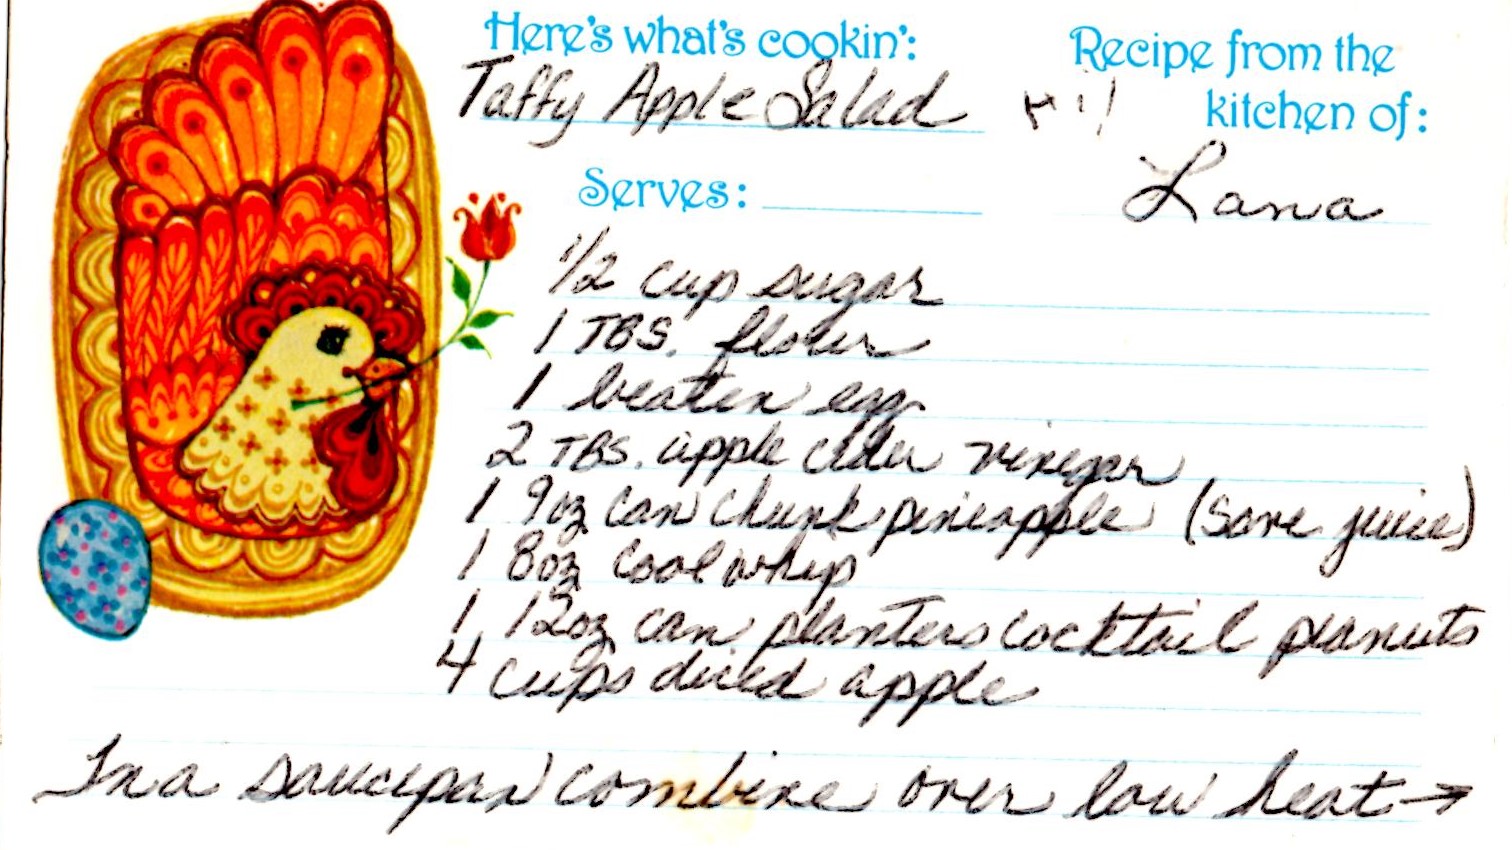 Here's what's cookin': Recipe from the
Taffy Apple Salad kitchen of:
Serves: Lana
1/2 cup sugar
1 TBS. flour
1 beaten egg
2 TBS. apple cider vinegar
1 9oz can chunk pineapple (save juice)
1 8oz cool whip
1 12oz can planters cocktail peanuts
4 cups diced apple
In a saucepan combine over low heat →